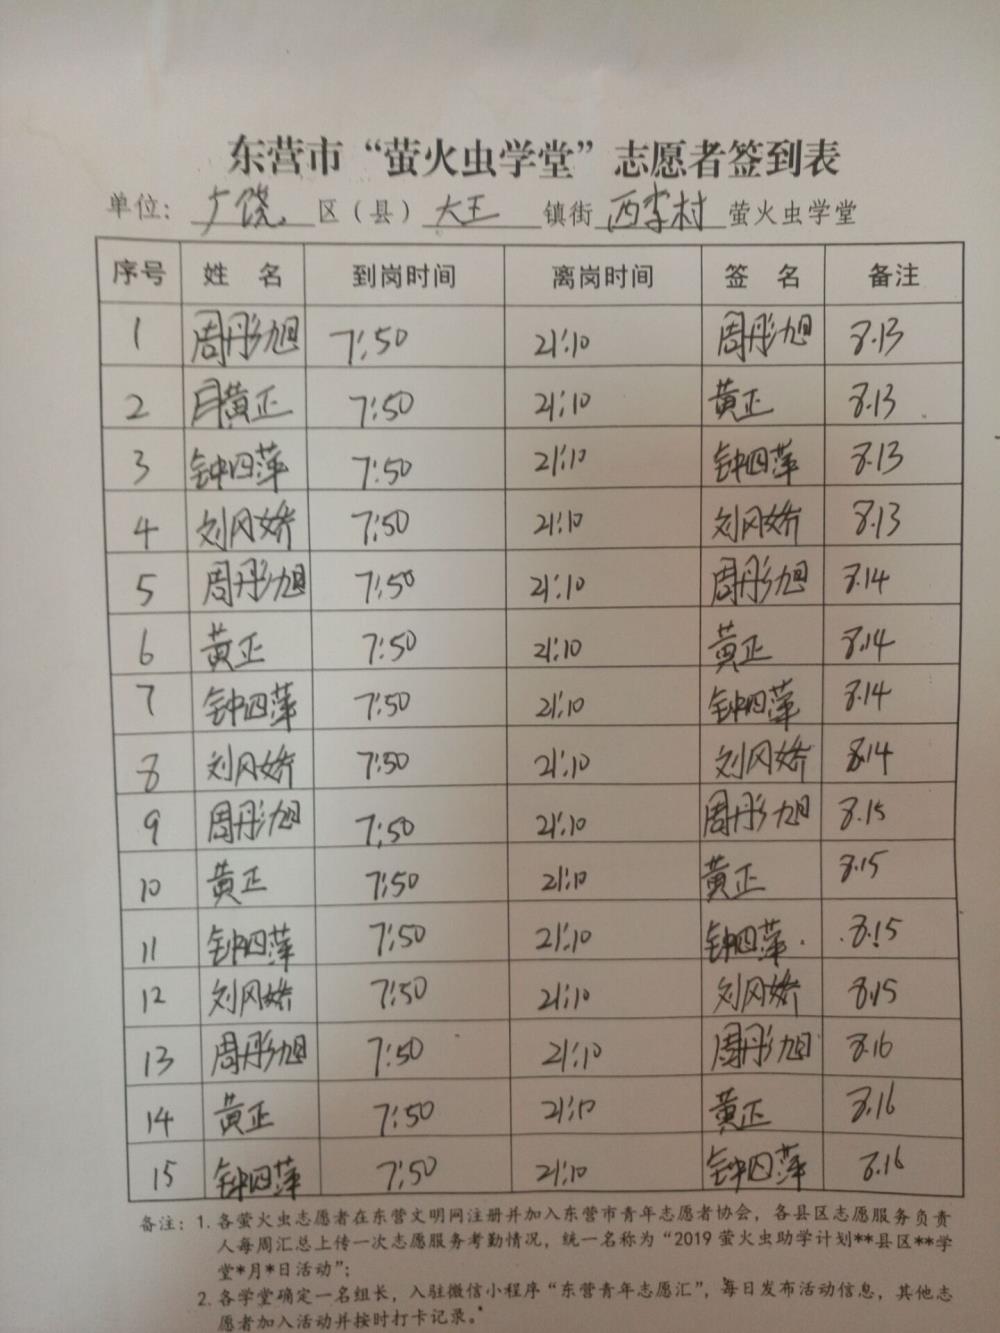 东营市“萤火虫学堂”志愿者签到表
单位：广饶区（县）大王镇街西李村萤火虫学堂
序号 姓 名 到岗时间 离岗时间 签 名 备注
1 周彤旭 7:50 21:10 周彤旭 8.13
2 黄正 7:50 21:10 黄正 8.13
3 钟四萍 7:50 21:10 钟四萍 8.13
4 刘风娇 7:50 21:10 刘风娇 8.13
5 周彤旭 7:50 21:10 周彤旭 8.14
6 黄正 7:50 21:10 黄正 8.14
7 钟四萍 7:50 21:10 钟四萍 8.14
8 刘风娇 7:50 21:10 刘风娇 8.14
9 周彤旭 7:50 21:10 周彤旭 8.15
10 黄正 7:50 21:10 黄正 8.15
11 钟四萍 7:50 21:10 钟四萍 8.15
12 刘风娇 7:50 21:10 刘风娇 8.15
13 周彤旭 7:50 21:10 周彤旭 8.16
14 黄正 7:50 21:10 黄正 8.16
15 钟四萍 7:50 21:10 钟四萍 8.16
备注：1. 各萤火虫志愿者在东营文明网注册并加入东营市青年志愿者协会，各县区志愿服务负责
人每周汇总上传一次志愿服务考勤情况，统一名称为“2019萤火虫助学计划**县区**学
堂*月*日活动”；
2. 各学堂确定一名组长，入驻微信小程序“东营青年志愿汇”，每日发布活动信息，其他志
愿者加入活动并按时打卡记录。